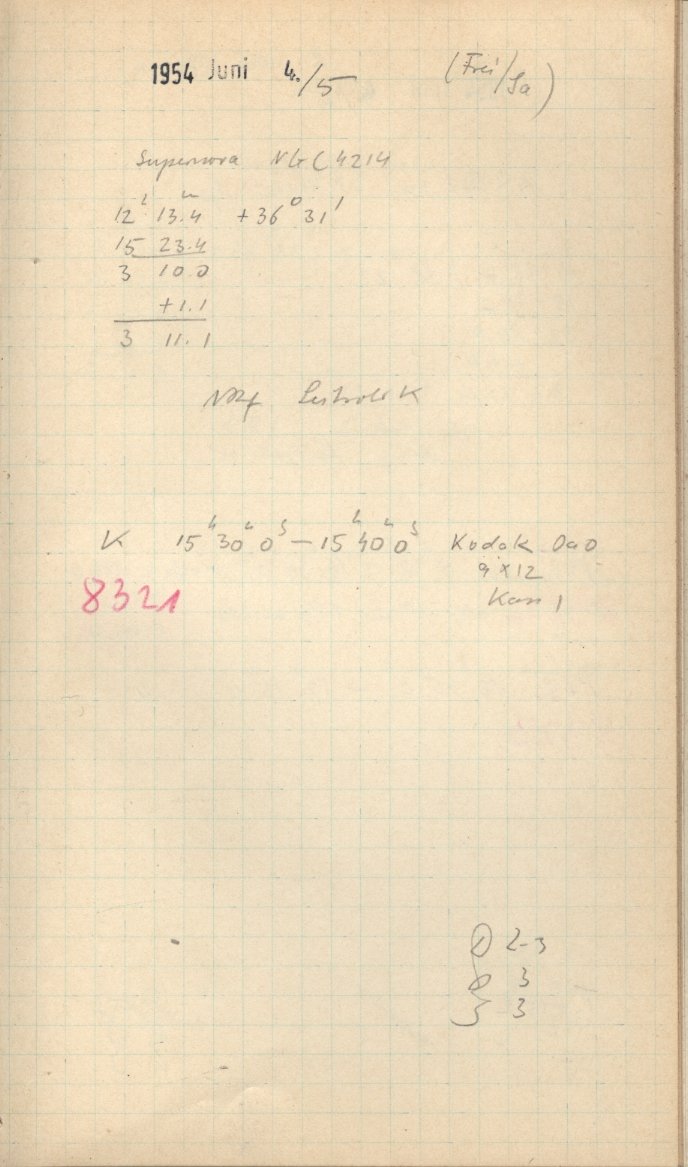 1954 Juni 4./5 (Frei/Sa)
Supernova NGC 4214
12ʰ 13.4ᵐ +36° 31'
15 23.4
3 10.0
+1.1
3 11.1
K 15ʰ30ᵐ0ˢ – 15ʰ40ᵐ0ˢ Kodak OaO
9 x 12
8321 Kass 1
2-3
3
3